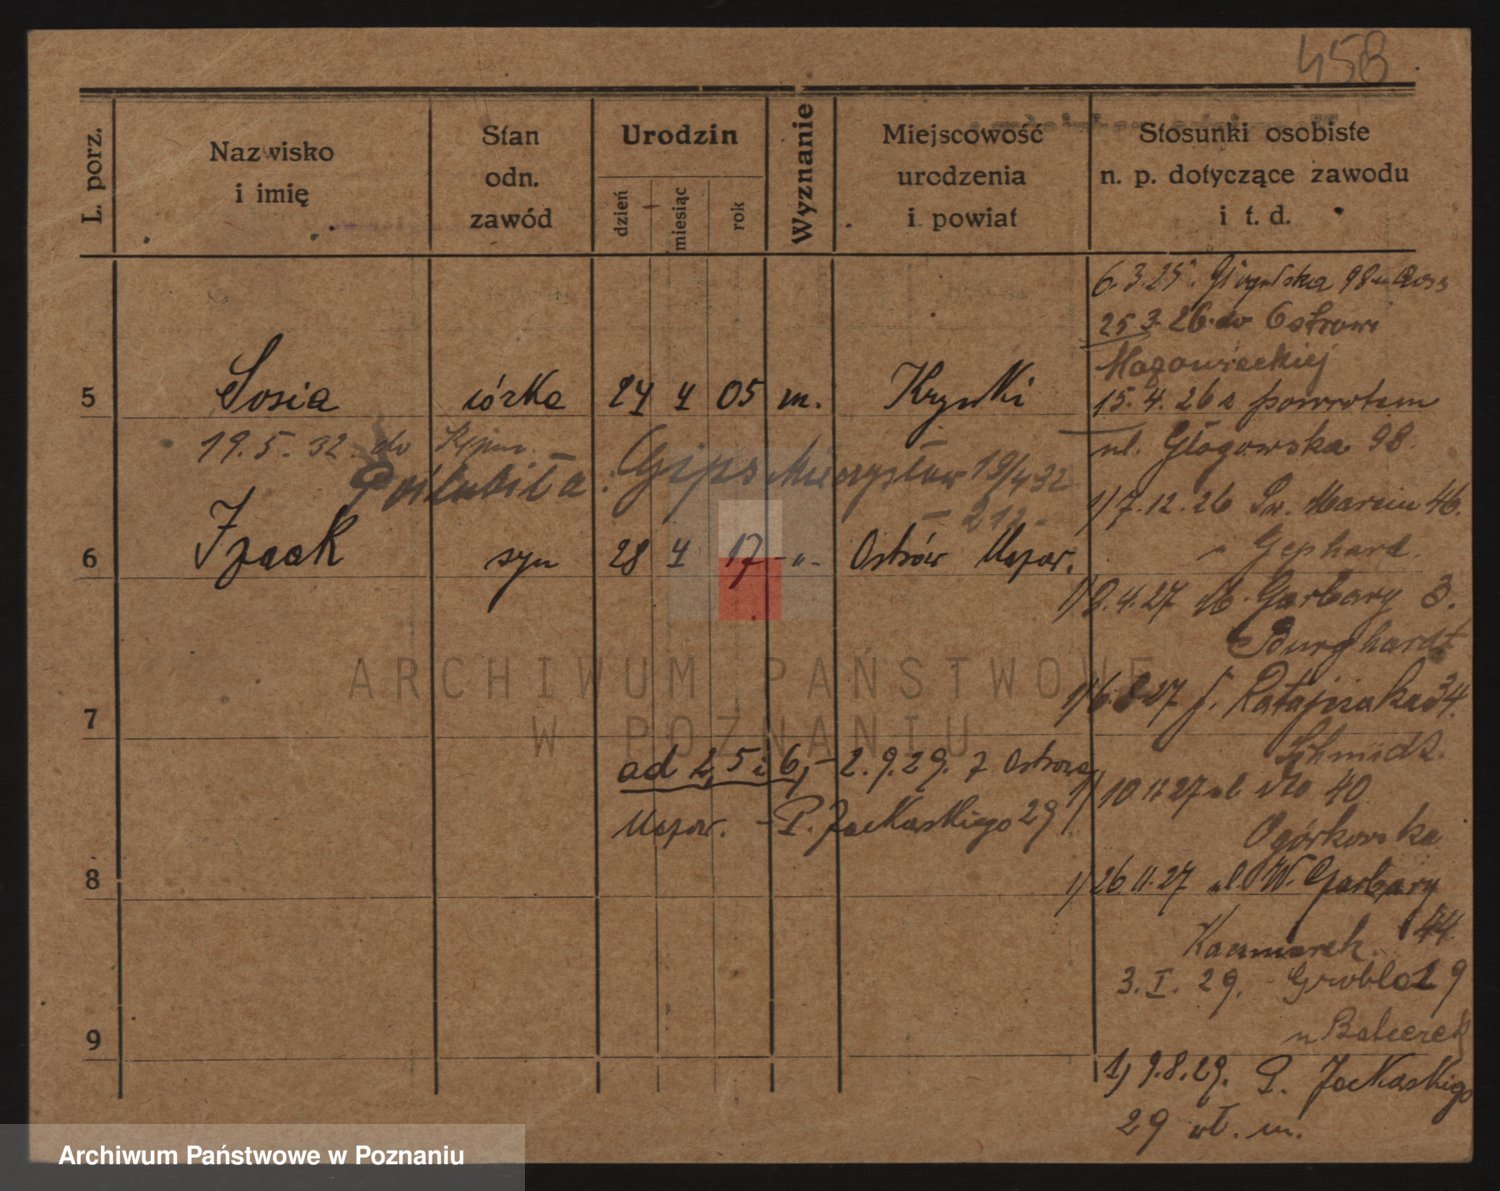 458
L. porz.
Nazwisko
i imię
Stan
odn.
zawód
Urodzin
dzień
miesiąc
rok
Wyznanie
Miejscowość
urodzenia
i powiat
Stosunki osobiste
n. p. dotyczące zawodu
i t. d.
6.3.25. 98
25 3. 26. do Ostrowi
Mazowieckiej
15. 4. 26 z powrotem
ul. Głogowska 98.
5 Sosia córka 05 m. Krynki
19. 5. 32 do
Poślubiła Gips Mieczysław 19/4 32
1) 7. 12. 26 Św. Marcin 46.
Gephard.
6 Izaak syn 28 17 -„- Ostrów Mazow.
1) 9.4.27 W. Garbary 3.
Burghardt
1) 6 8 27 Ratajczaka 34.
Schmidt.
7
ad 2, 5 i 6, - 2. 9. 29. z Ostrowa
Mazow. - P. Jackowskiego 29
1) 10 11 27 40
Ogórkowska
8
1) 26. 11. 27 ul. W. Garbary
44
Kaczmarek.
3. I. 29. Grobla 29
u Balcerek
9
1) 9. 8. 29. P. Jackowskiego
29 wł. m.
ARCHIWUM PAŃSTWOWE
W POZNANIU
Archiwum Państwowe w Poznaniu